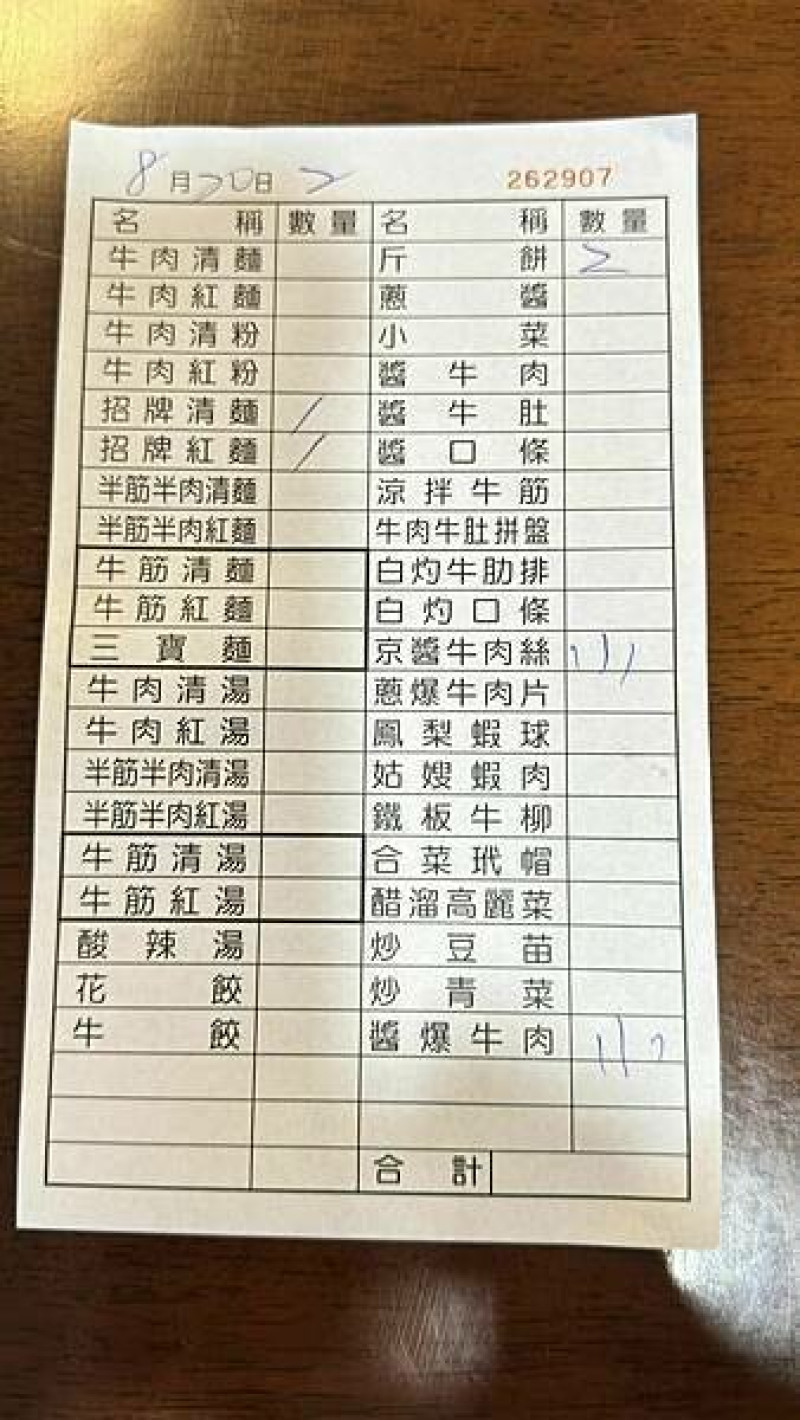 8月20日 2 262907
名稱 數量 名稱 數量
牛肉清麵 斤餅 2
牛肉紅麵 蔥醬
牛肉清粉 小菜
牛肉紅粉 醬牛肉
招牌清麵 / 醬牛肚
招牌紅麵 / 醬口條
半筋半肉清麵 涼拌牛筋
半筋半肉紅麵 牛肉牛肚拼盤
牛筋清麵 白灼牛肋排
牛筋紅麵 白灼口條
三寶麵 京醬牛肉絲
牛肉清湯 蔥爆牛肉片
牛肉紅湯 鳳梨蝦球
半筋半肉清湯 姑嫂蝦肉
半筋半肉紅湯 鐵板牛柳
牛筋清湯 合菜玳帽
牛筋紅湯 醋溜高麗菜
酸辣湯 炒豆苗
花餃 炒青菜
牛餃 醬爆牛肉
合計